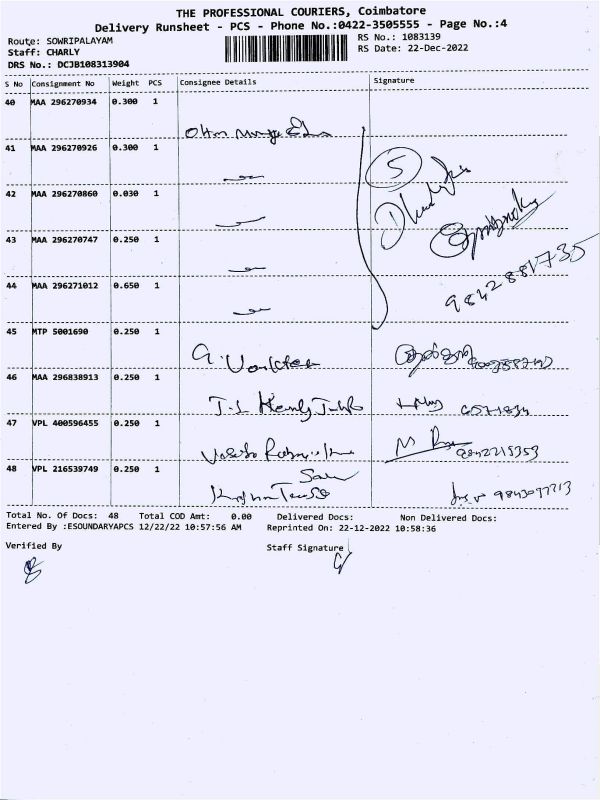 THE PROFESSIONAL COURIERS, Coimbatore
Delivery Runsheet - PCS - Phone No.:0422-3505555 - Page No.:4
Route: SOWRIPALAYAM
Staff: CHARLY
DRS No.: DCJB108313904
RS No.: 1083139
RS Date: 22-Dec-2022
S No Consignment No Weight PCS Consignee Details Signature
40 MAA 296270934 0.300 1
41 MAA 296270926 0.300 1
5
42 MAA 296270860 0.030 1
43 MAA 296270747 0.250 1
44 MAA 296271012 0.650 1
9842881735
45 MTP 5001690 0.250 1
46 MAA 296838913 0.250 1
47 VPL 400596455 0.250 1
9842215353
48 VPL 216539749 0.250 1
Total No. Of Docs: 48 Total COD Amt: 0.00 Delivered Docs: Non Delivered Docs:
Entered By :ESOUNDARYAPCS 12/22/22 10:57:56 AM Reprinted On: 22-12-2022 10:58:36
Verified By Staff Signature